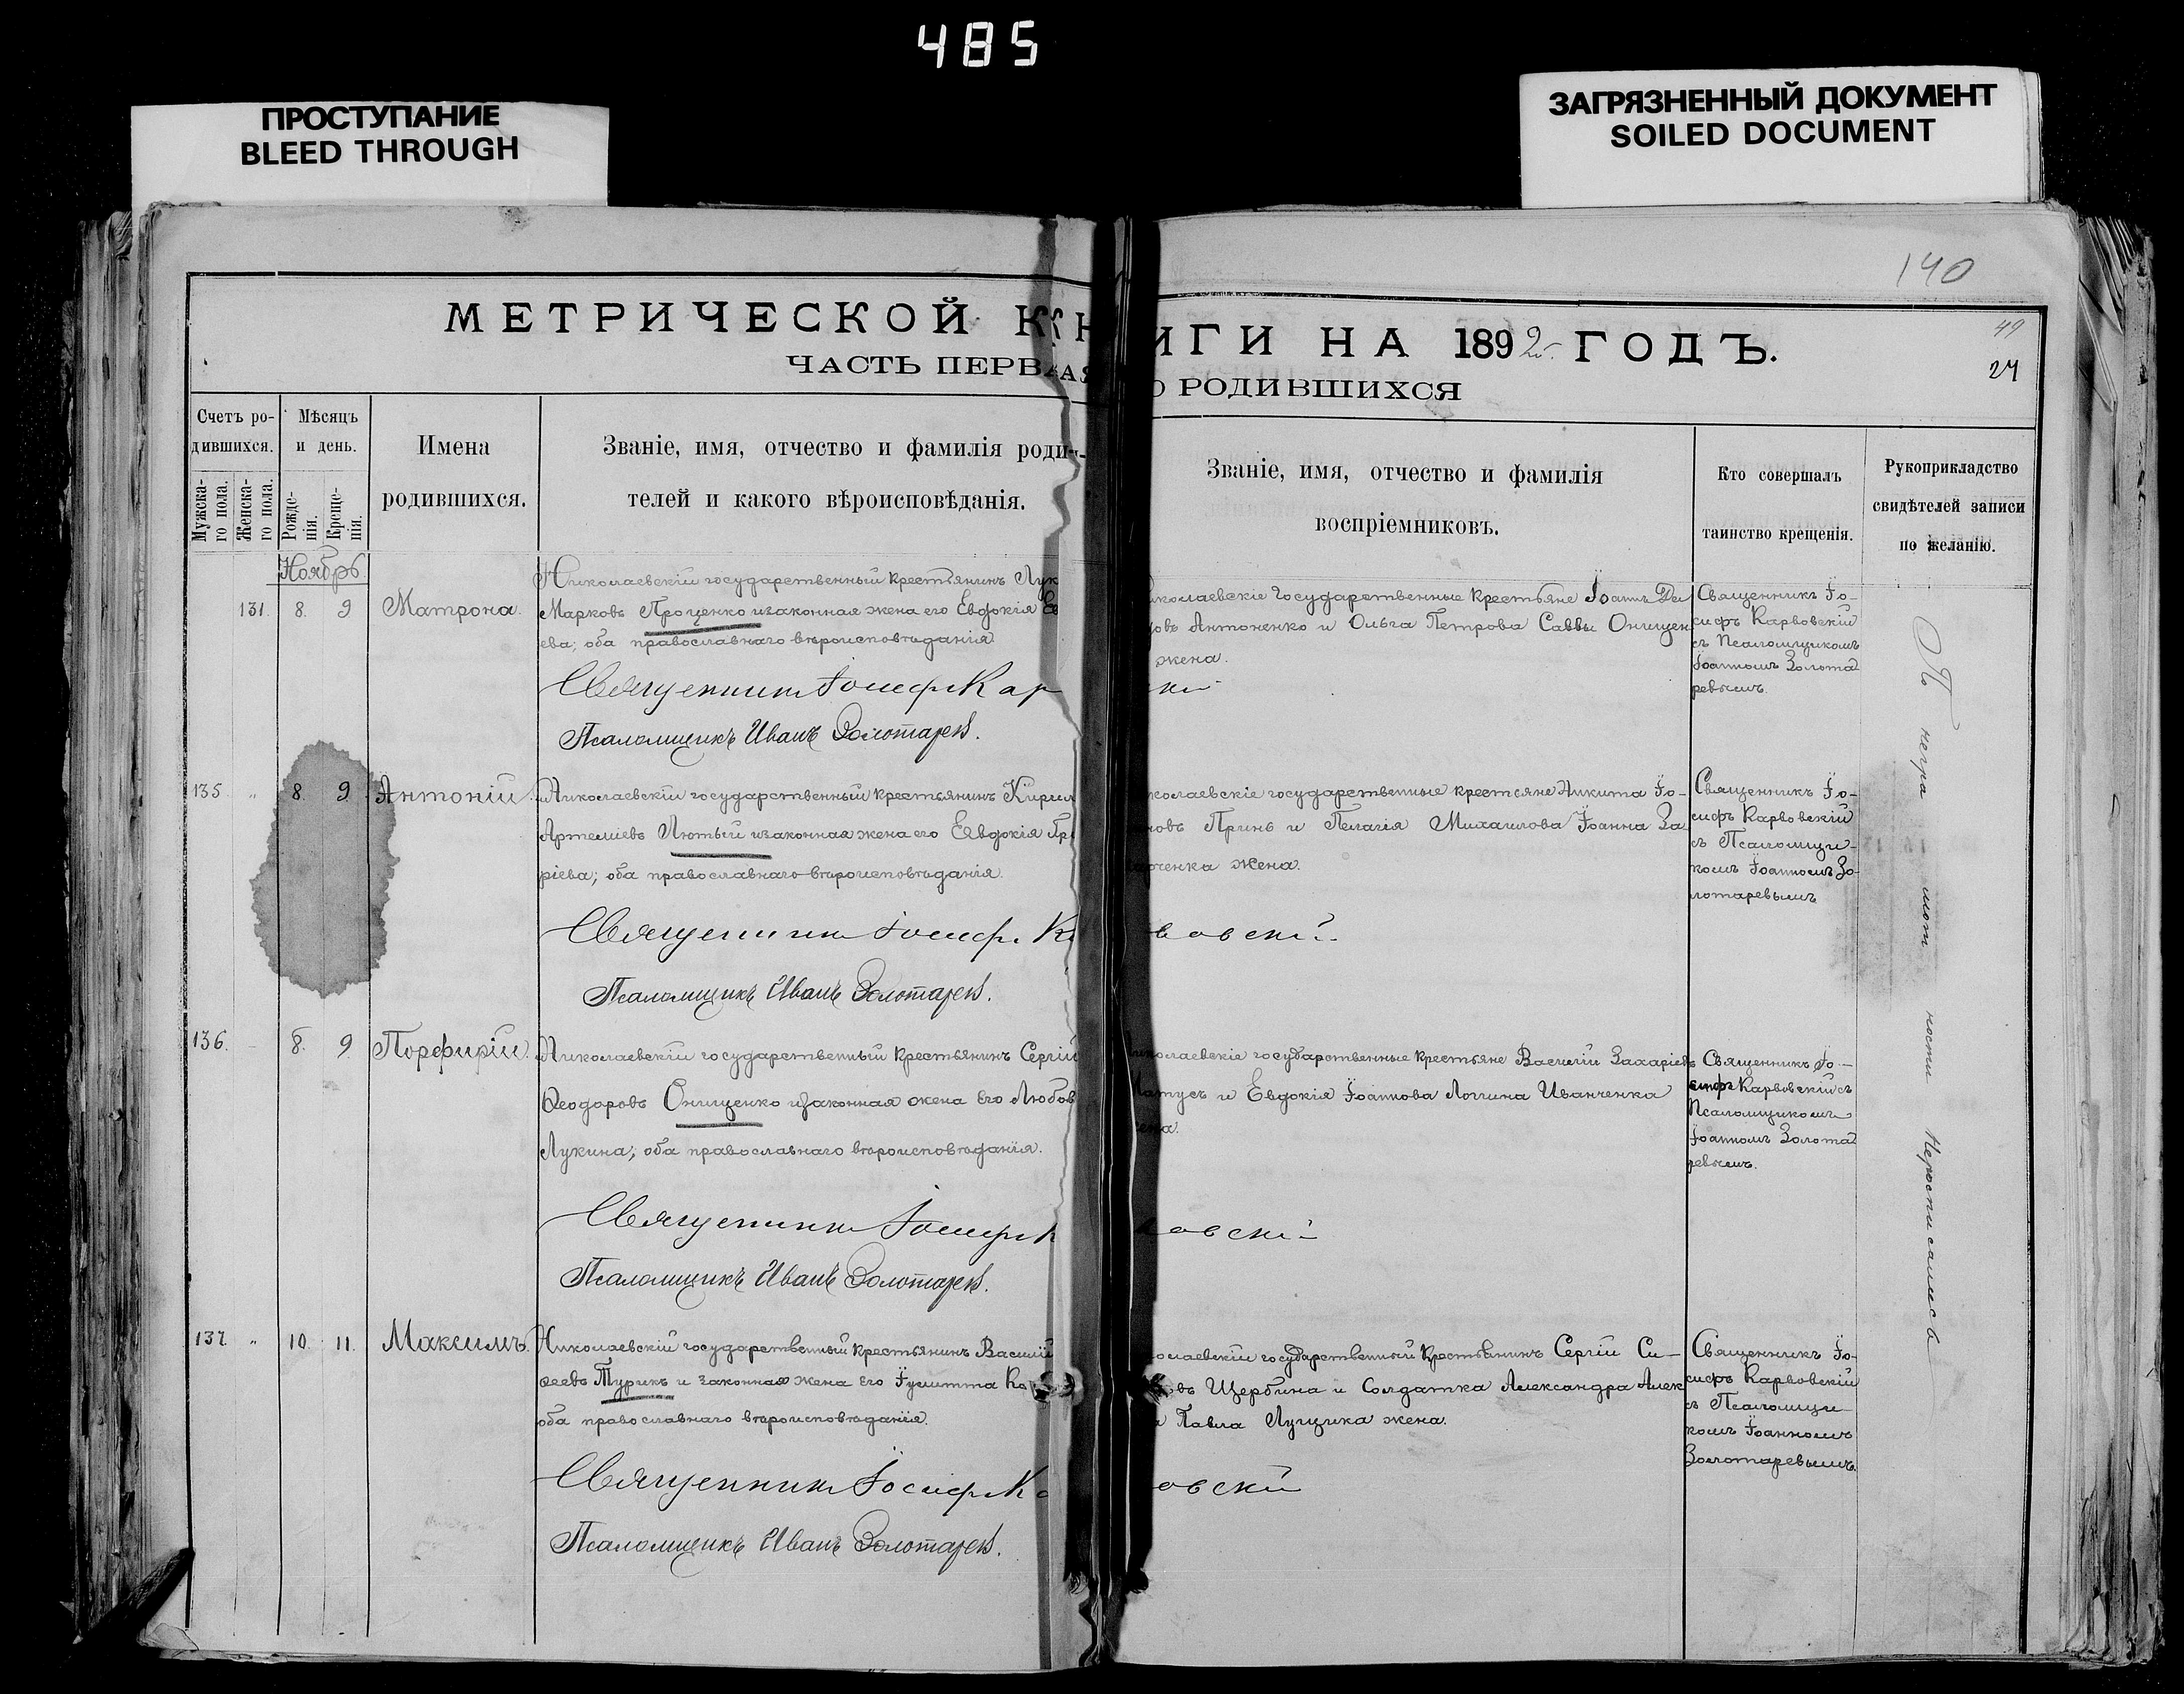 485
ПРОСТУПАНИЕ
BLEED THROUGH
ЗАГРЯЗНЕННЫЙ ДОКУМЕНТ
SOILED DOCUMENT
140
МЕТРИЧЕСКОЙ К
ИГИ НА 1892 ГОДЪ.
49
ЧАСТЬ ПЕРВАЯ
О РОДИВШИХСЯ
24
Счетъ ро-
дившихся.
Мужска-
го пола.
Женска-
го пола.
Мѣсяцъ
и день.
Рожде-
нія.
Креще-
нія.
Имена
родившихся.
Званіе, имя, отчество и фамилія роди-
телей и какого вѣроисповѣданія.
Званіе, имя, отчество и фамилія
воспріемниковъ.
Кто совершалъ
таинство крещенія.
Рукоприкладство
свидѣтелей записи
по желанію.
Ноябрь
131. 8. 9 Матрона.
Николаевскій государственный крестьянинъ Лук
Марковъ Проценко и законная жена его Евдокія
ева; оба православнаго вѣроисповѣданія
Священникъ Іосифъ Кар
Псаломщикъ Иванъ Золотаревъ.
иколаевскіе государственные крестьяне Іоаннъ
овъ Антоненко и Ольга Петрова Саввы Онищен
жена.
Священникъ Іо-
сифъ Карвовскій
съ Псаломщикомъ
Іоанномъ Золота
ревымъ.
135 „ 8. 9. Антоній.
Николаевскій государственный крестьянинъ Кирил
Артеміевъ Лютый и законная жена его Евдокія Гр
ріева; оба православнаго вѣроисповѣданія.
Священникъ Іосифъ
вовскій
Псаломщикъ Иванъ Золотаревъ.
колаевскіе государственные крестьяне Никита Іо-
новъ Принь и Пелагія Михаилова Іоанна За
ченка жена.
Священникъ Іо-
сифъ Карвовскій
съ Псаломщи-
комъ Іоанномъ Зо-
лотаревымъ
136. 8. 9 Порфирій.
Николаевскій государственный крестьянинъ Сергій
Ѳеодоровъ Онищенко и законная жена его Любов
Лукина; оба православнаго вѣроисповѣданія.
Священникъ Іосифъ К
овскій
Псаломщикъ Иванъ Золотаревъ.
иколаевскіе государственные крестьяне Василій Захаріевъ
Матусъ и Евдокія Іоаннова Логгина Иванченка
жена.
Священникъ Іо-
сифъ Карвовскій съ
Псаломщикомъ
Іоанномъ Золота
ревымъ.
137 „ 10. 11. Максимъ.
Николаевскій государственный крестьянинъ Василій
Турикъ и законная жена его Іулитта Ко
оба православнаго вѣроисповѣданія.
Священникъ Іосифъ К
овскій
Псаломщикъ Иванъ Золотаревъ.
олаевскій государственный крестьянинъ Сергій Си-
овъ Щербина и Солдатка Александра Алек
а Павла Луцика жена.
Священникъ Іо-
сифъ Карвовскій
съ Псаломщи-
комъ Іоанномъ
Золотаревымъ.